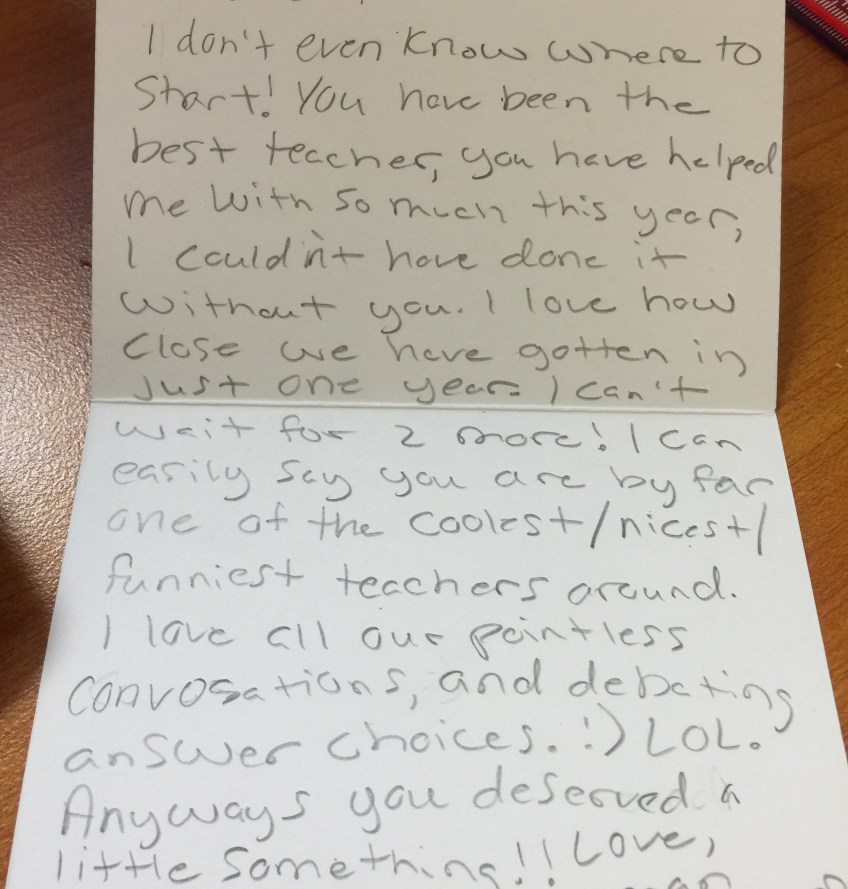 I don't even know where to
Start! You have been the
best teacher, you have helped
me with so much this year,
I couldn't have done it
without you. I love how
close we have gotten in
just one year. I can't
wait for 2 more! I can
easily say you are by far
one of the coolest/nicest/
funniest teachers around.
I love all our pointless
convosations, and debating
answer choices. :) LOL.
Anyways you deserved a
little something!! Love,